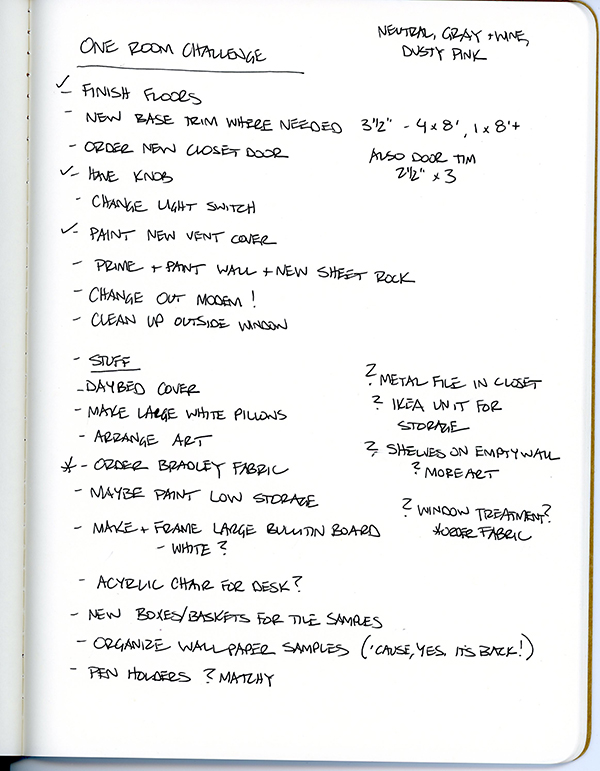 ONE ROOM CHALLENGE
NEUTRAL, GRAY + WINE,
DUSTY PINK
✓- FINISH FLOORS
- NEW BASE TRIM WHERE NEEDED 3 1/2" - 4 x 8', 1 x 8'+
- ORDER NEW CLOSET DOOR
ALSO DOOR TIM
2 1/2" x 3
✓- HAVE KNOB
- CHANGE LIGHT SWITCH
✓- PAINT NEW VENT COVER
- PRIME + PAINT WALL + NEW SHEET ROCK
- CHANGE OUT MODEM!
- CLEAN UP OUTSIDE WINDOW
- STUFF
- DAYBED COVER
- MAKE LARGE WHITE PILLOWS
- ARRANGE ART
* - ORDER BRADLEY FABRIC
- MAYBE PAINT LOW STORAGE
- MAKE + FRAME LARGE BULLITIN BOARD
- WHITE?
- ACYRLIC CHAIR FOR DESK?
- NEW BOXES/BASKETS FOR TILE SAMPLES
- ORGANIZE WALLPAPER SAMPLES ('CAUSE, YES. IT'S BACK!)
- PEN HOLDERS ? MATCHY
? METAL FILE IN CLOSET
? IKEA UNIT FOR
STORAGE
? SHELVES ON EMPTY WALL
? MORE ART
? WINDOW TREATMENT?
*ORDER FABRIC